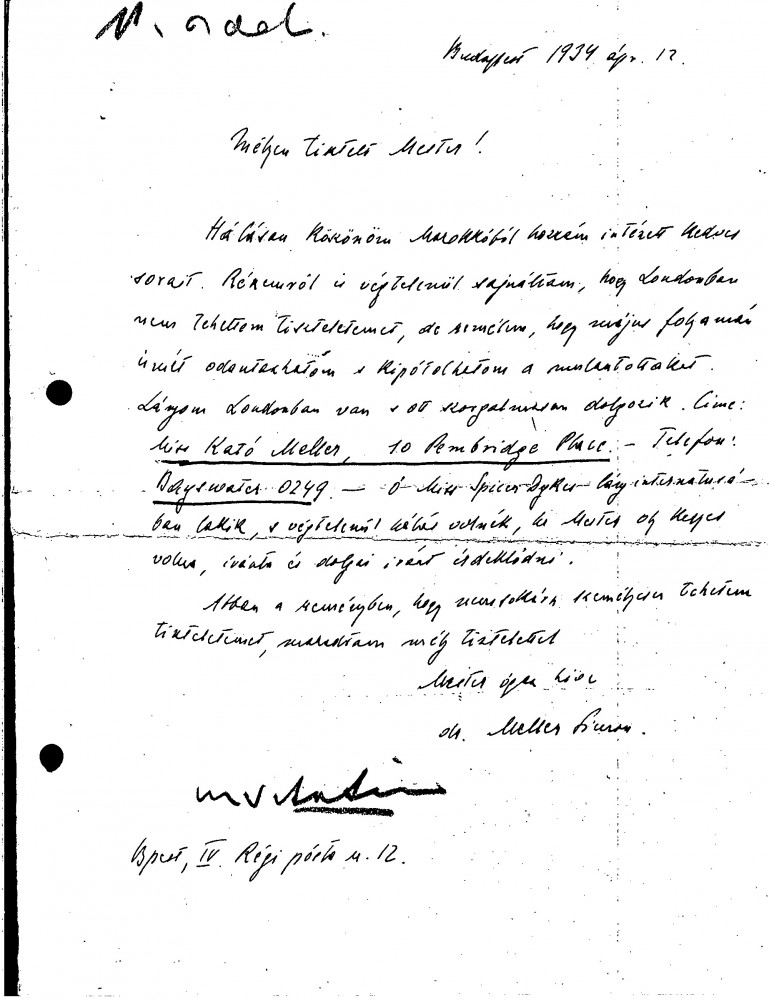 Budapest 1934 ápr. 12.
Mélyen tisztelt Mester!
Hálásan köszönöm Marokkóból hozzám intézett kedves
sorait. Részemről is végtelenül sajnáltam, hogy Londonban
nem tehettem tiszteletemet, de remélem, hogy május folyamán
ismét odautazhatom s kipótolhatom a mulasztottakat.
Lányom Londonban van s ott szorgalmasan dolgozik. Címe:
Miss Kató Meller, 10 Pembridge Place. – Telefon:
Bayswater 0249. – Ő Miss Spicer Dykes lányinternátusá-
ban lakik, s végtelenül hálás volnék, ha Mester oly kegyes
volna, iránta és dolgai iránt érdeklődni.
Abban a reményben, hogy nemsokára személyesen tehetem
tiszteletemet, maradtam mély tisztelettel
Mester igaz híve
dr. Meller Simon.
Bpest, IV. Régi pósta u. 12.